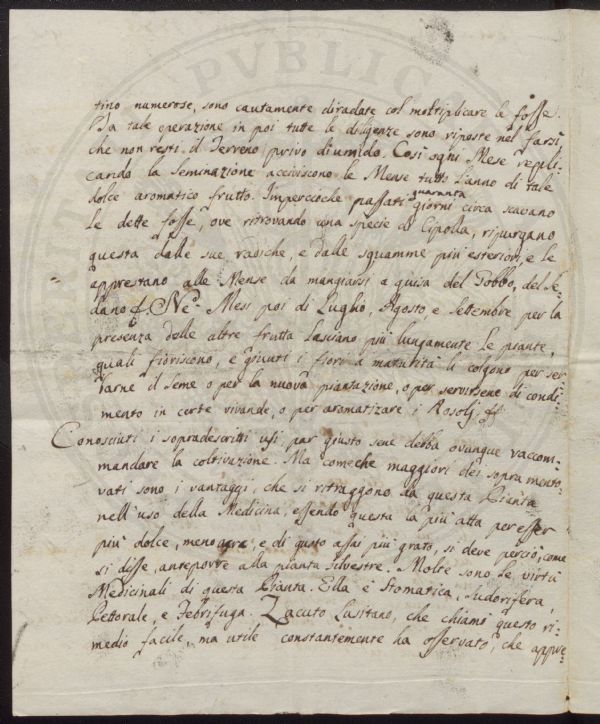 tino numerose, sono cautamente diradate col moltiplicare le fosse.
Da tale operazione in poi tutte le diligenze sono riposte nel farsi,
che non resti il Terreno privo d'umido. Così ogni Mese repli-
cando la seminazione arricchiscono le Mense tutto l'anno di tale
dolce aromatico frutto. Imperciochè passati quaranta giorni circa scavano
le dette fosse, ove ritrovando una specie di Cipolla, ripurgano
questa dalle sue radiche, e dalle squamme più esteriori, e le
apprestano alle Mense da mangiarsi a guisa del Gobbo, del Se-
dano &. Ne' Mesi poi di Luglio, Agosto, e Settembre per la
presenza delle altre frutta lasciano più lungamente le piante,
quali fioriscono, e giunti i fiori a maturità li colgono per ser-
varne il seme o per la nuova piantazione, o per servirsene di condi-
mento in certe vivande, o per aromatizare i Rosolj &.
Conosciuti i sopradescritti usi par giusto sene debba ovunque raccom-
mandare la coltivazione. Ma comeche maggiori dei sopra mento-
vati sono i vantaggi, che si ritraggono da questa Pianta
nell'uso della Medicina, essendo questa la più atta per esser
più dolce, meno agre, e di gusto assai più grato, si deve perciò, come
si disse, anteporre alla pianta silvestre. Molte sono le virtù
Medicinali di questa Pianta. Ella è Stomatica, Sudorifera,
Pettorale, e Febrifuga. Zacuto Lusitano, che chiamò questo ri-
medio facile, ma utile constantemente ha osservato, che appre-